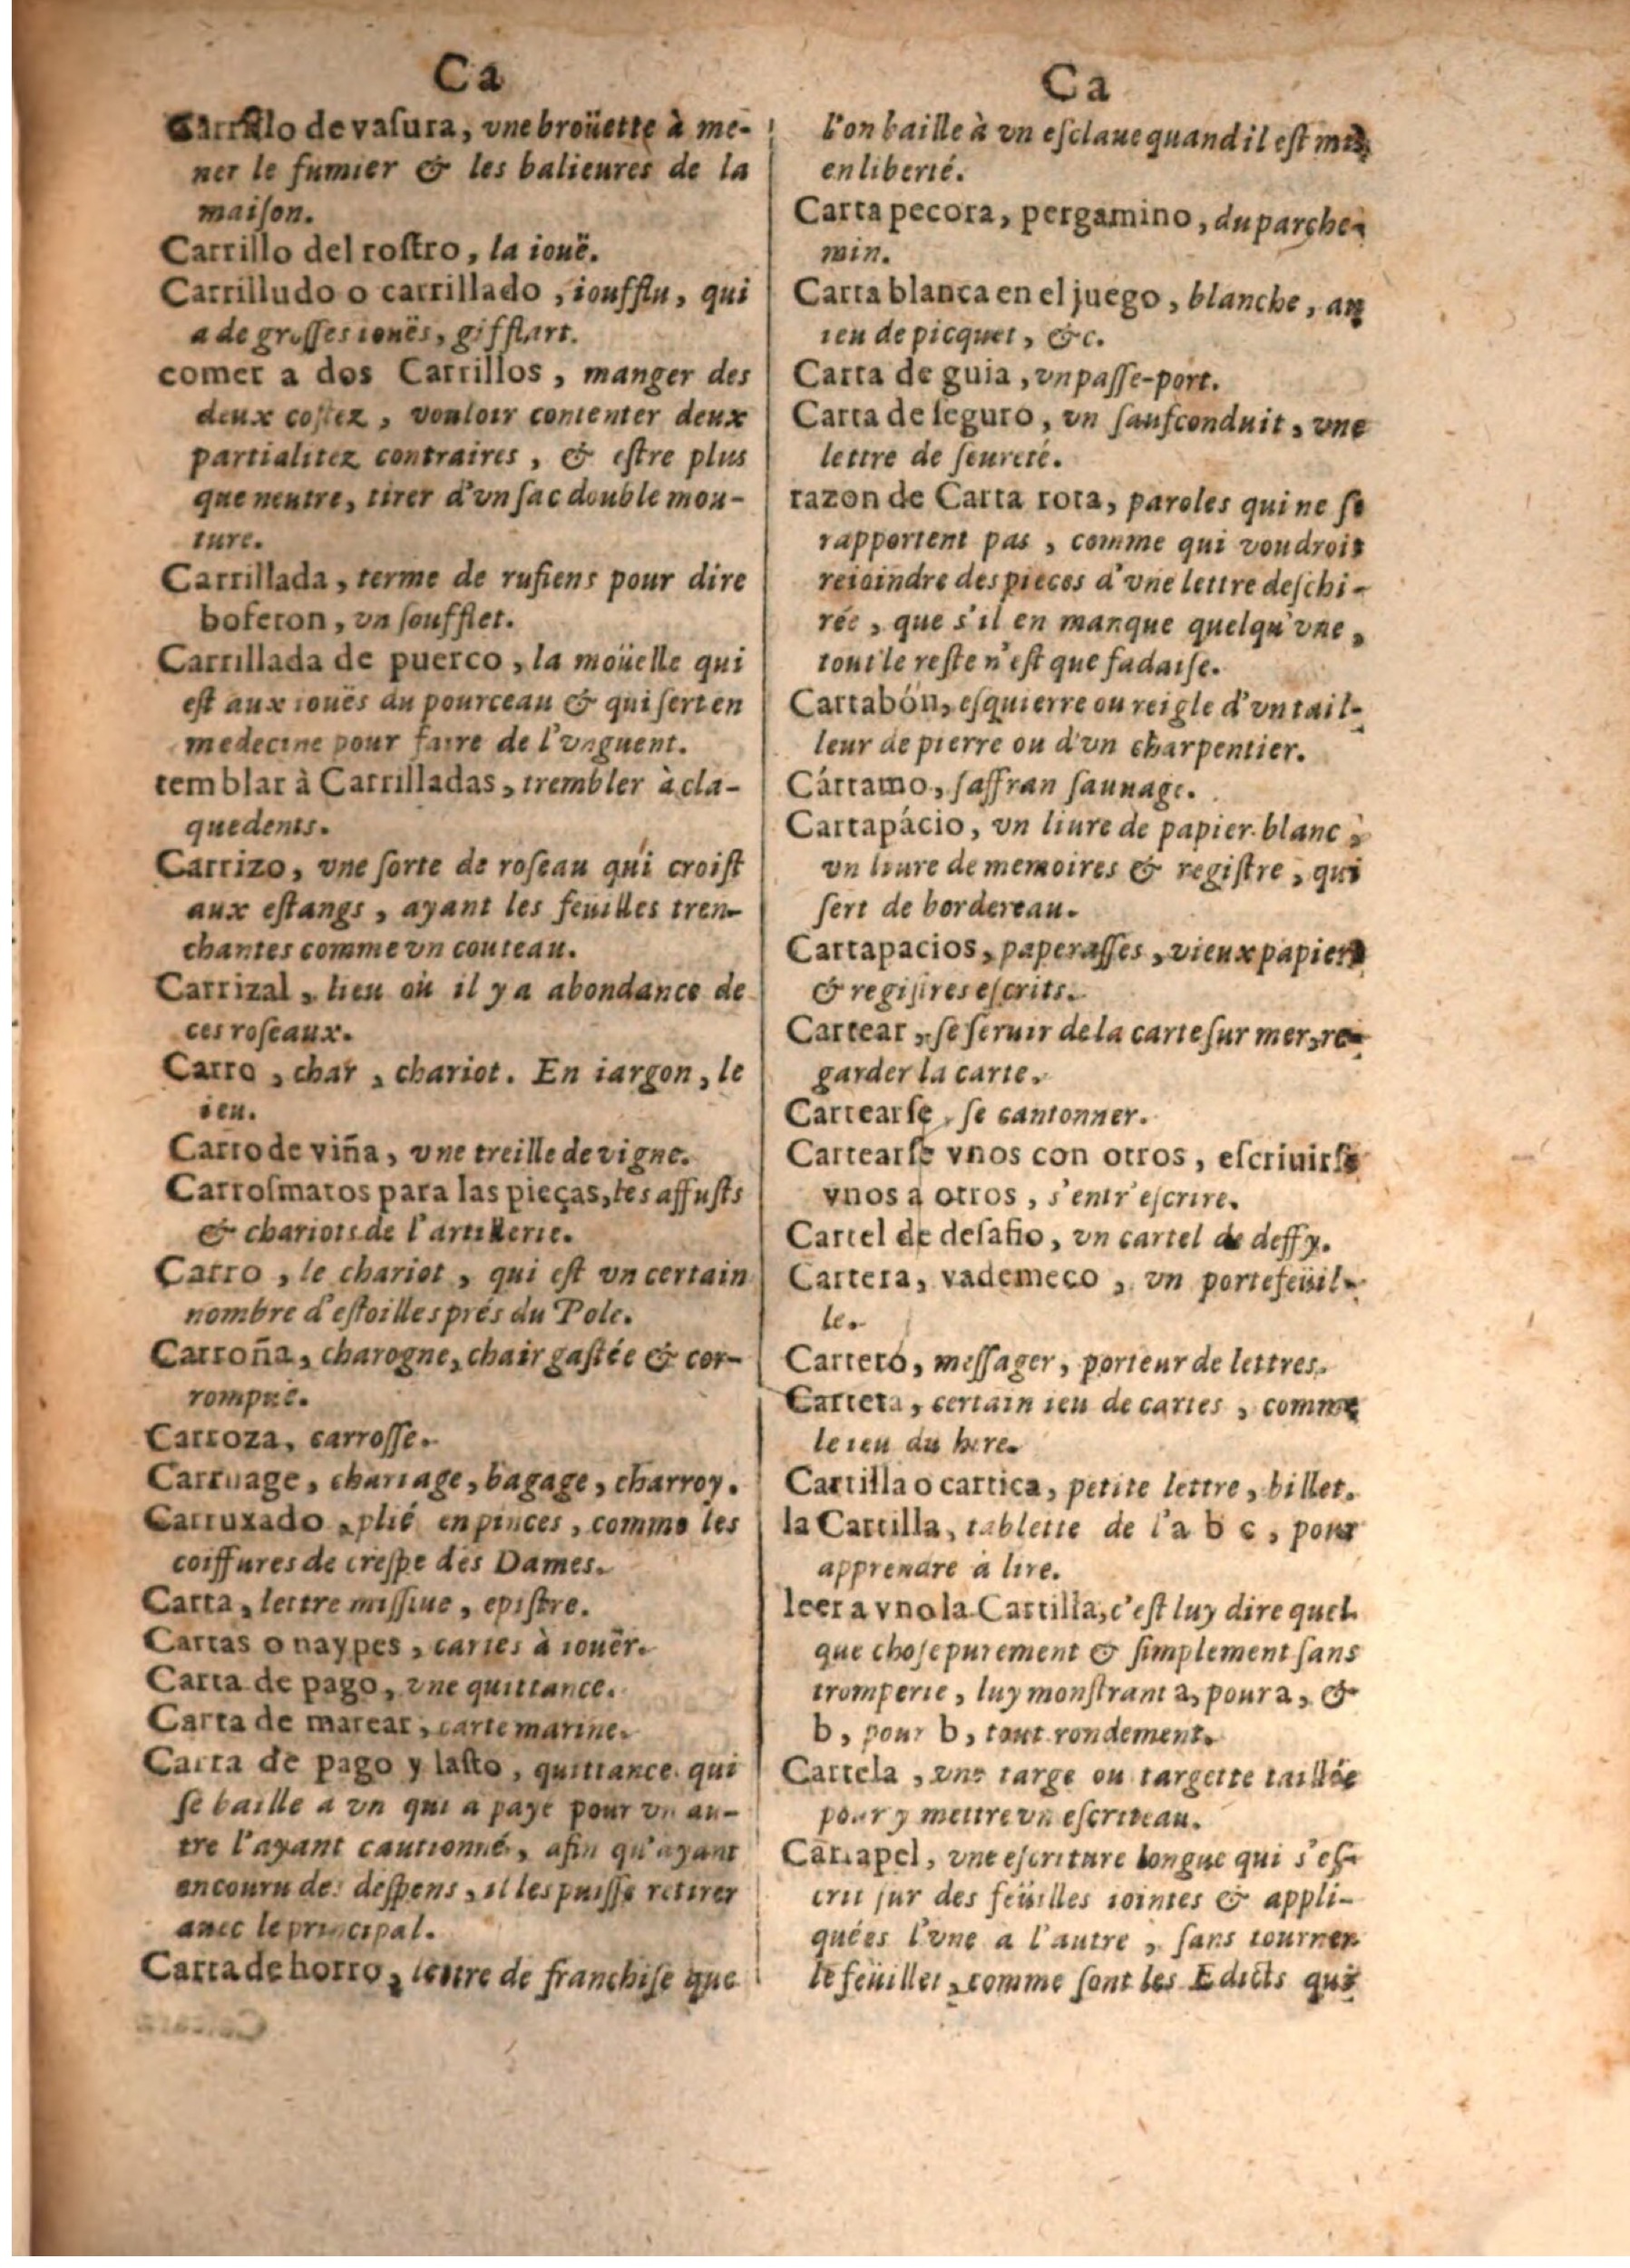 Ca
Carrillo de vasura, vne broüette à me-
ner le fumier & les balieures de la
maison.
Carrillo del rostro, la iouë.
Carrilludo o carrillado, ioufflu, qui
a de grosses iouës, gifflart.
comer a dos Carrillos, manger des
deux costez, vouloir contenter deux
partialitez contraires, & estre plus
que neutre, tirer d'vn sac double mou-
ture.
Carrillada, terme de rufiens pour dire
bofeton, vn soufflet.
Carrillada de puerco, la moüelle qui
est aux iouës du pourceau & qui sert en
medecine pour faire de l'vnguent.
temblar à Carrilladas, trembler à cla-
quedents.
Carrizo, vne sorte de roseau qui croist
aux estangs, ayant les feuilles tren-
chantes comme vn couteau.
Carrizal, lieu où il y a abondance de
ces roseaux.
Carro, char, chariot. En iargon, le
ieu.
Carro de viña, vne treille de vigne.
Carrosmatos para las pieças, les affusts
& chariots de l'artillerie.
Carro, le chariot, qui est vn certain
nombre d'estoilles prés du Pole.
Carroña, charogne, chair gastée & cor-
rompuë.
Carroza, carrosse.
Carruage, chariage, bagage, charroy.
Carruxado, plié en pinces, comme les
coiffures de crespe des Dames.
Carta, lettre missiue, epistre.
Cartas o naypes, cartes à iouër.
Carta de pago, vne quittance.
Carta de marear, carte marine.
Carta de pago y lasto, quittance qui
se baille a vn qui a payé pour vn au-
tre l'ayant cautionné, afin qu'ayant
encouru des despens, il les puisse retirer
auec le principal.
Carta de horro, lettre de franchise que
Ca
l'on baille à vn esclaue quand il est mis
en liberté.
Carta pecora, pergamino, du parche-
min.
Carta blanca en el juego, blanche, au
ieu de picquet, &c.
Carta de guia, vn passe-port.
Carta de seguro, vn saufconduit, vne
lettre de seureté.
razon de Carta rota, paroles qui ne se
rapportent pas, comme qui voudroit
reioindre des pieces d'vne lettre deschi-
rée, que s'il en manque quelqu'vne,
tout le reste n'est que fadaise.
Cartabón, esquierre ou reigle d'vn tail-
leur de pierre ou d'vn charpentier.
Cártamo, saffran sauuage.
Cartapácio, vn liure de papier blanc,
vn liure de memoires & registre, qui
sert de bordereau.
Cartapacios, paperasses, vieux papiers
& registres escrits.
Cartear, se seruir de la carte sur mer, re-
garder la carte.
Cartearse, se cantonner.
Cartearse vnos con otros, escriuirse
vnos a otros, s'entr'escrire.
Cartel de desafio, vn cartel de deffy.
Cartera, vademeco, vn portefeüil-
le.
Carteró, messager, porteur de lettres.
Carteta, certain ieu de cartes, comme
le ieu du here.
Cartilla o cartica, petite lettre, billet.
la Cartilla, tablette de l'a b c, pour
apprendre à lire.
leer a vno la Cartilla, c'est luy dire quel-
que chose purement & simplement sans
tromperie, luy monstrant a, pour a, &
b, pour b, tout rondement.
Cartela, vne targe ou targette taillée
pour y mettre vn escriteau.
Cartapel, vne escriture longue qui s'es-
crit sur des feüilles iointes & appli-
quées l'vne a l'autre, sans tourner
le feüillet, comme sont les Edicts qui